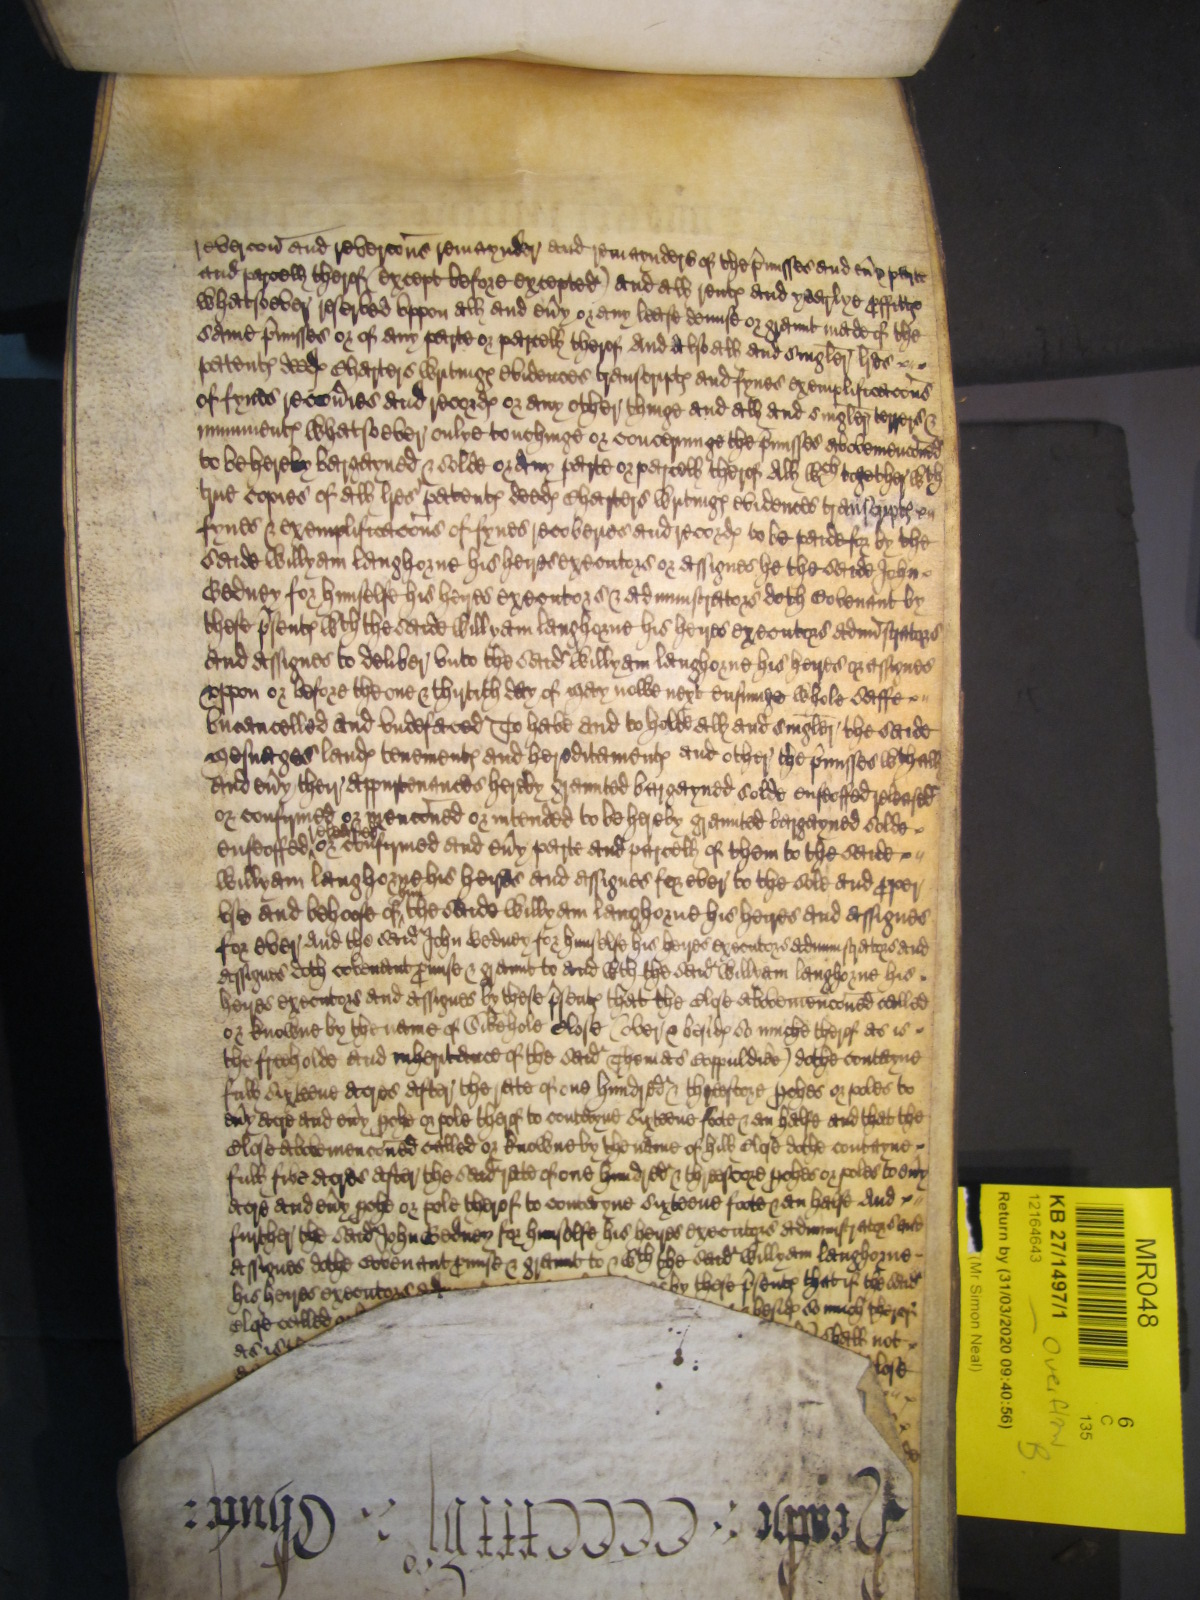 revercon and revercons remaynder and remaynders of the pmisses and evy parte
and parcell therof (except before excepted) and all rentes and yearlye pffittes
whatsoever reserved uppon all and evy or any lease demise or graunt made of the
same pmisses or of any parte or parcell therof And also all and singler lres
patentes deedes charters writinges evidences transcriptes and fynes exemplificacons
of fynes recovies and recordes or any other thinge and all and singler terrers &
munimentes whatsoever onlye touchinge or concerninge the pmisses abovemenconed
to be hereby bargayned & solde or any parte or parcell therof All wch together wth
true copies of all lres patentes deedes charters writinges evidences transcriptes
fynes & exemplificacons of fynes recoveries and recordes to be paide for by the
saide Willyam Langhorne his heyres executors or assignes he the saide John
Bedney for himselfe his heyres executors & administrators doth Covenant by
these psentes wth the saide Willyam Langhorne his heyres executors administrators
and assignes to deliver unto the said Willyam Langhorne his heyres or assignes
uppon or before the one & thirtith day of May nowe next ensuinge whole saffe
uncancelled and undefaced To have and to holde all and singler the saide
Mesuages landes tenementes and hereditamentes and other the pmisses wth all
and evy their appurtenances hereby graunted bargayned solde enfeoffed released
or confirmed or menconed or intended to be hereby graunted bargayned solde
enfeoffed released or confirmed and evy parte and parcell of them to the saide
Willyam Langhorne his heires and assignes for ever to the sole and pper
use and behoofe of him the saide Willyam Langhorne his heyres and assignes
for ever And the said John Bedney for himselfe his heyres executors administrators and
assignes doth covenant pmise & graunt to and wth the said Willyam Langhorne his
heyres executors and assignes by these psentes that the Close abovemenconed called
or knowne by the name of Sikehole Close (over & besides so muche therof as is
the freeholde and inheritance of the said Thomas ) dothe contayne
full sixteene acres after the rate of one hundred & threescore perches or poles to
evy acre and evy perche or pole therof to contayne sixteene foote & an halfe and that the
Close abovemenconed called or knowne by the name of hill Close dothe contayne
full five acres after the said rate of one hundred & threescore perches or poles to evy
acre and evy perche or pole therof to contayne sixteene foote & an halfe And
further the said John Bedney for himselfe his heyres executors administrators and
assignes dothe Covenant pmise & graunt to & wth the said Willyam Langhorne
his heyres executors by these psentes that if the said
Close called besides so much therof
as is shall not
Close
MR048
6
C
135
KB 27/1497/1
12164643
Return by (31/03/2020 09:40:56)
(Mr Simon Neal)
Overflow B